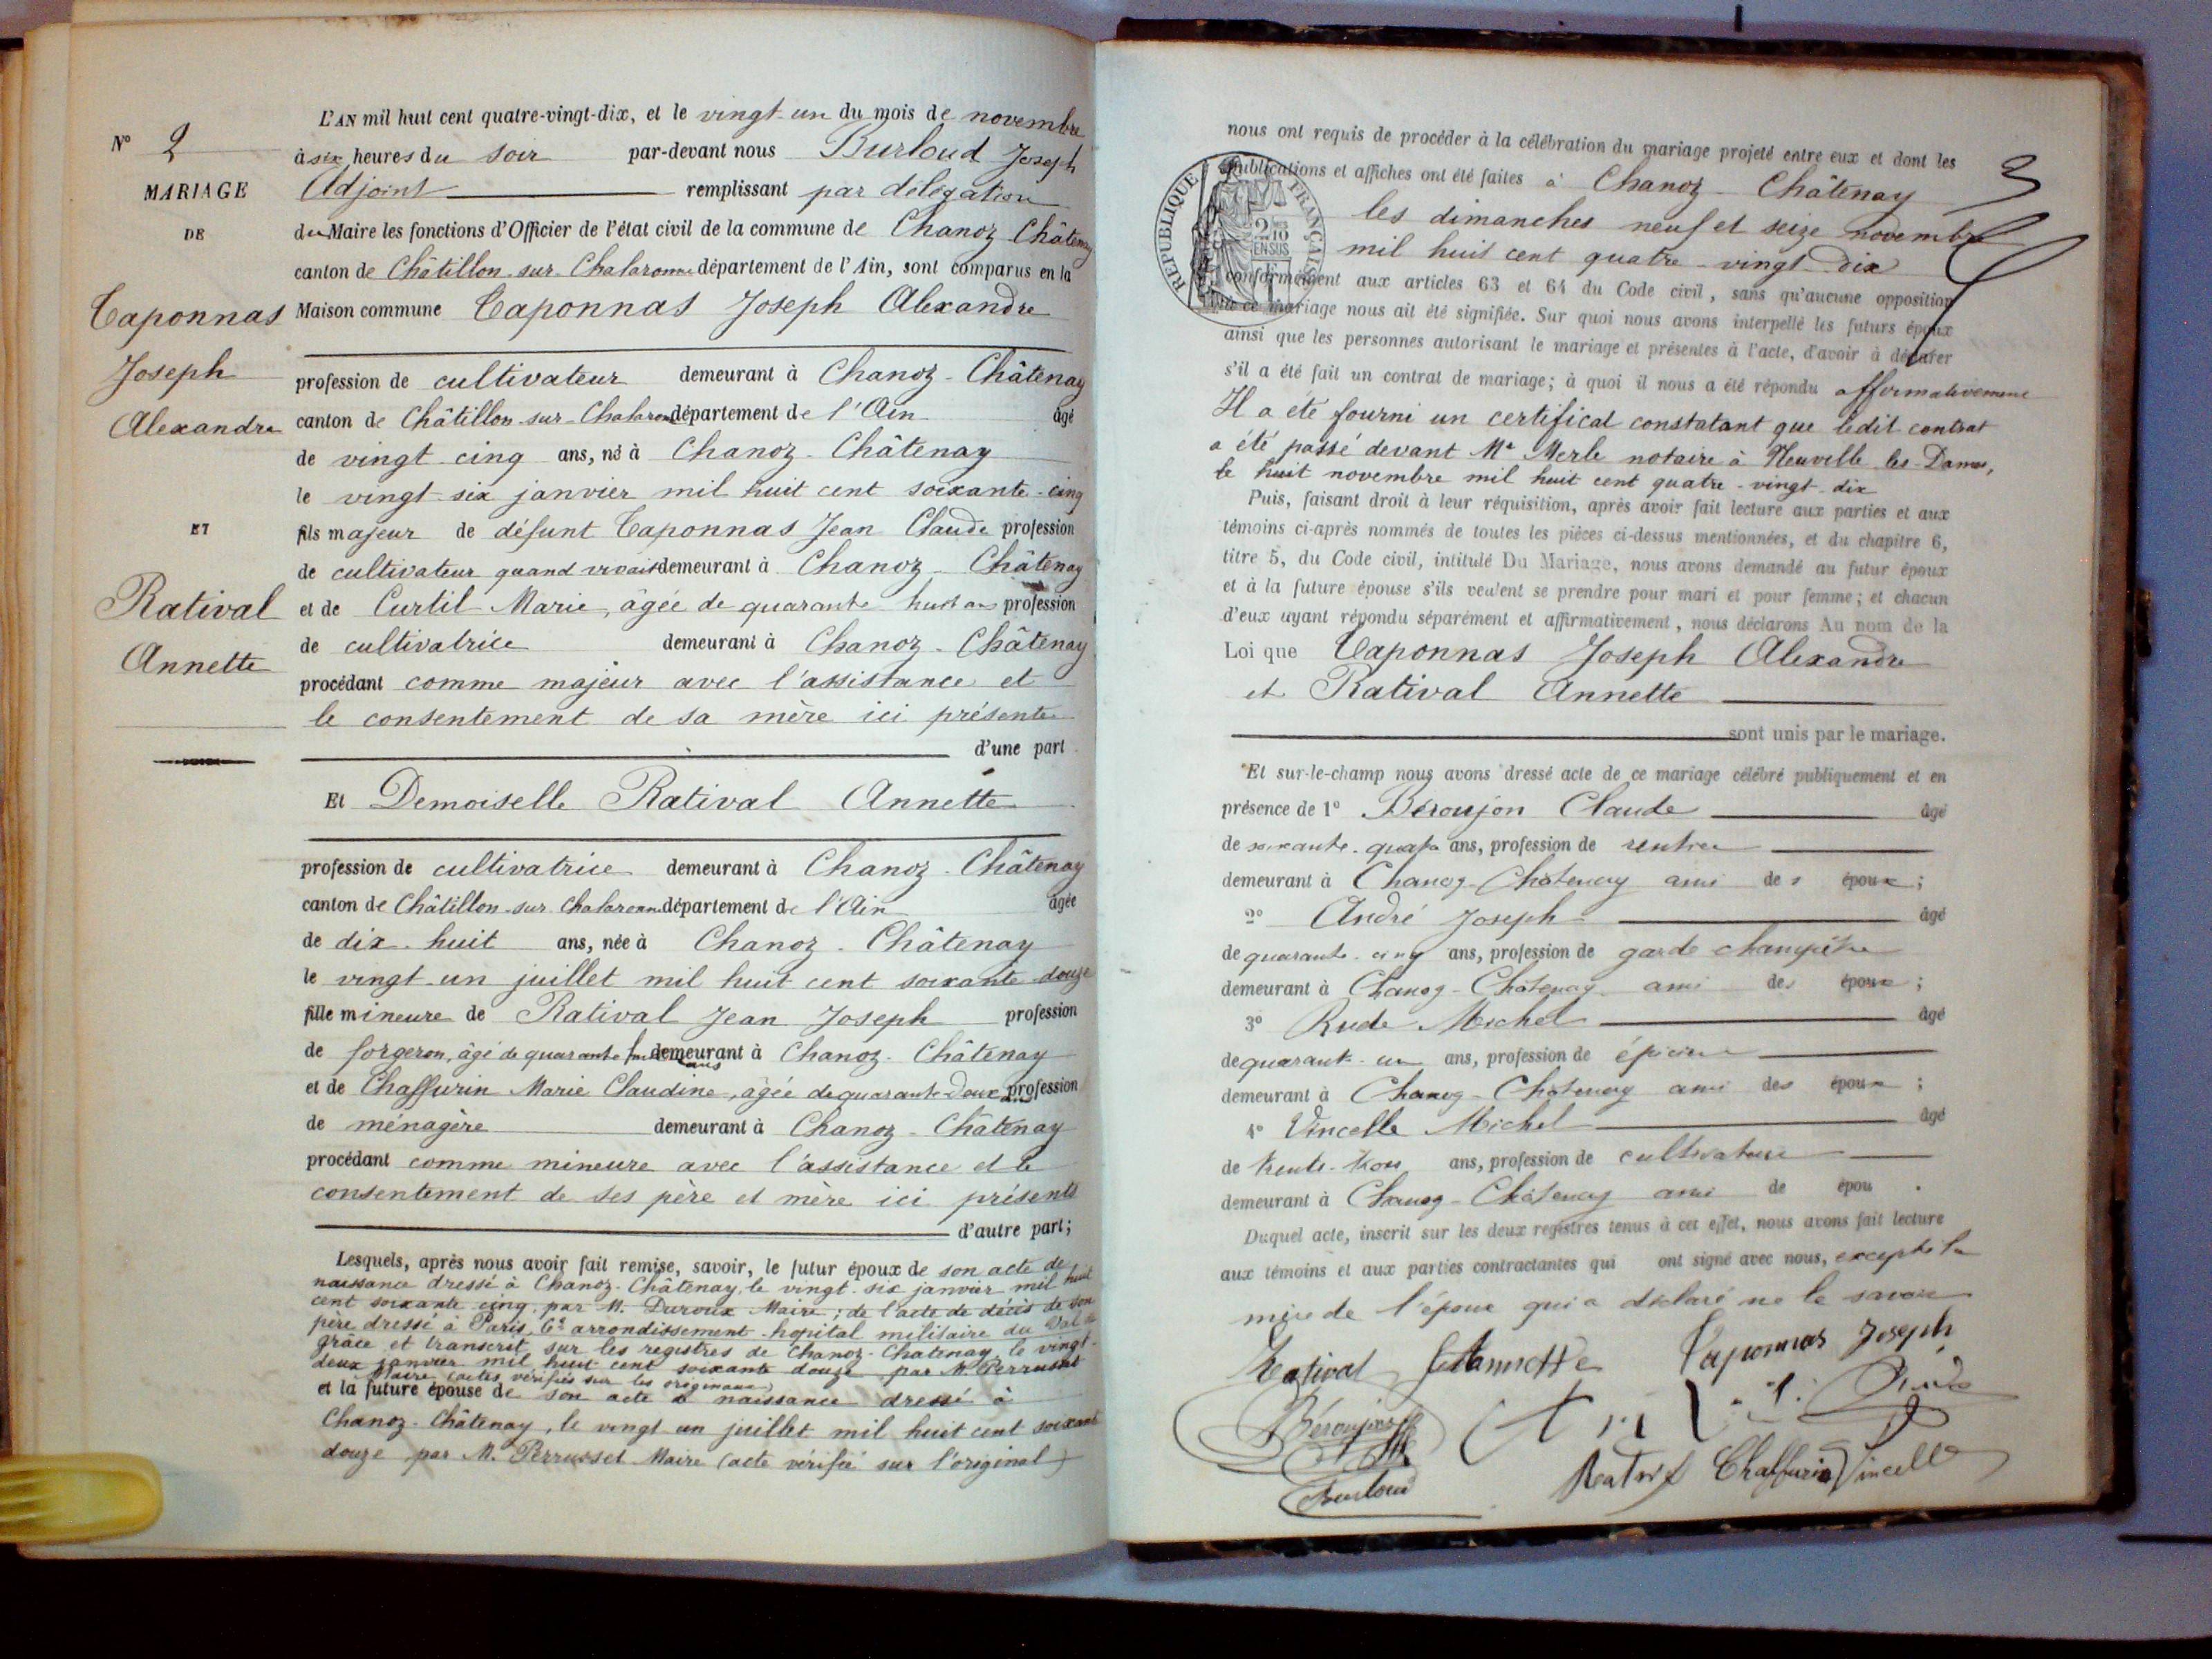 L'AN mil huit cent quatre-vingt-dix, et le vingt-un du mois de novembre
N° 2
à six heures du soir par-devant nous Burloud Joseph
MARIAGE
Adjoint remplissant par délégation
DE
du Maire les fonctions d'Officier de l'état civil de la commune de Chanoz Châtenay
canton de Châtillon-sur-Chalaronne département de l'Ain, sont comparus en la
Caponnas
Maison commune Caponnas Joseph Alexandre
Joseph
profession de cultivateur demeurant à Chanoz-Châtenay
Alexandre
canton de Châtillon-sur-Chalaronne département de l'Ain âgé
de vingt-cinq ans, né à Chanoz-Châtenay
le vingt-six janvier mil huit cent soixante-cinq
ET
fils majeur de défunt Caponnas Jean Claude profession
de cultivateur quand vivait demeurant à Chanoz-Châtenay
Ratival
et de Curtil Marie, âgée de quarante huit ans profession
de cultivatrice demeurant à Chanoz-Châtenay
Annette
procédant comme majeur avec l'assistance et
le consentement de sa mère ici présente
d'une part
Et Demoiselle Ratival Annette
profession de cultivatrice demeurant à Chanoz-Châtenay
canton de Châtillon-sur-Chalaronne département de l'Ain âgée
de dix-huit ans, née à Chanoz-Châtenay
le vingt-un juillet mil huit cent soixante-douze
fille mineure de Ratival Jean Joseph profession
de forgeron, âgé de quarante ans demeurant à Chanoz-Châtenay
et de Chaffurin Marie Claudine, âgée de quarante-deux ans profession
de ménagère demeurant à Chanoz-Châtenay
procédant comme mineure avec l'assistance et le
consentement de ses père et mère ici présents
d'autre part;
Lesquels, après nous avoir fait remise, savoir, le futur époux de son acte de
naissance dressé à Chanoz-Châtenay, le vingt-six janvier mil huit
cent soixante cinq, par M. Duroux Maire; de l'acte de décès de son
père dressé à Paris, 6e arrondissement hopital militaire du Val de
Grâce et transcrit sur les registres de Chanoz-Chatenay le vingt-
deux janvier mil huit cent soixante douze par M. Perrusset
Maire (actes vérifiés sur les originaux)
et la future épouse de son acte de naissance dressé à
Chanoz-Châtenay, le vingt un juillet mil huit cent soixante
douze par M. Perrusset Maire (acte vérifié sur l'original)
nous ont requis de procéder à la célébration du mariage projeté entre eux et dont les
publications et affiches ont été faites à Chanoz-Châtenay
RÉPUBLIQUE FRANÇAISE
2/10 EN SUS
les dimanches neuf et seize novembre
mil huit cent quatre-vingt-dix
conformément aux articles 63 et 64 du Code civil, sans qu'aucune opposition
à ce mariage nous ait été signifiée. Sur quoi nous avons interpellé les futurs époux
ainsi que les personnes autorisant le mariage et présentes à l'acte, d'avoir à déclarer
s'il a été fait un contrat de mariage; à quoi il nous a été répondu affirmativement
Il a été fourni un certificat constatant que ledit contrat
a été passé devant Me Merle notaire à Neuville-les-Dames,
le huit novembre mil huit cent quatre-vingt-dix
Puis, faisant droit à leur réquisition, après avoir fait lecture aux parties et aux
témoins ci-après nommés de toutes les pièces ci-dessus mentionnées, et du chapitre 6,
titre 5, du Code civil, intitulé Du Mariage, nous avons demandé au futur époux
et à la future épouse s'ils veulent se prendre pour mari et pour femme; et chacun
d'eux ayant répondu séparément et affirmativement, nous déclarons Au nom de la
Loi que Caponnas Joseph Alexandre
et Ratival Annette
sont unis par le mariage.
Et sur-le-champ nous avons dressé acte de ce mariage célébré publiquement et en
présence de 1° Béroujon Claude âgé
de soixante-quatre ans, profession de rentier
demeurant à Chanoz-Châtenay ami des époux;
2° André Joseph âgé
de quarante-cinq ans, profession de garde champêtre
demeurant à Chanoz-Châtenay ami des époux;
3° Rude Michel âgé
de quarante-un ans, profession de épicier
demeurant à Chanoz-Châtenay ami des époux;
4° Vincelle Michel âgé
de trente-trois ans, profession de cultivateur
demeurant à Chanoz-Châtenay ami de épou.
Duquel acte, inscrit sur les deux registres tenus à cet effet, nous avons fait lecture
aux témoins et aux parties contractantes qui ont signé avec nous, excepté la
mère de l'époux qui a déclaré ne le savoir
Ratival Annette Caponnas Joseph
Béroujon Rude
Burloud Ratival Chaffurin Vincelle